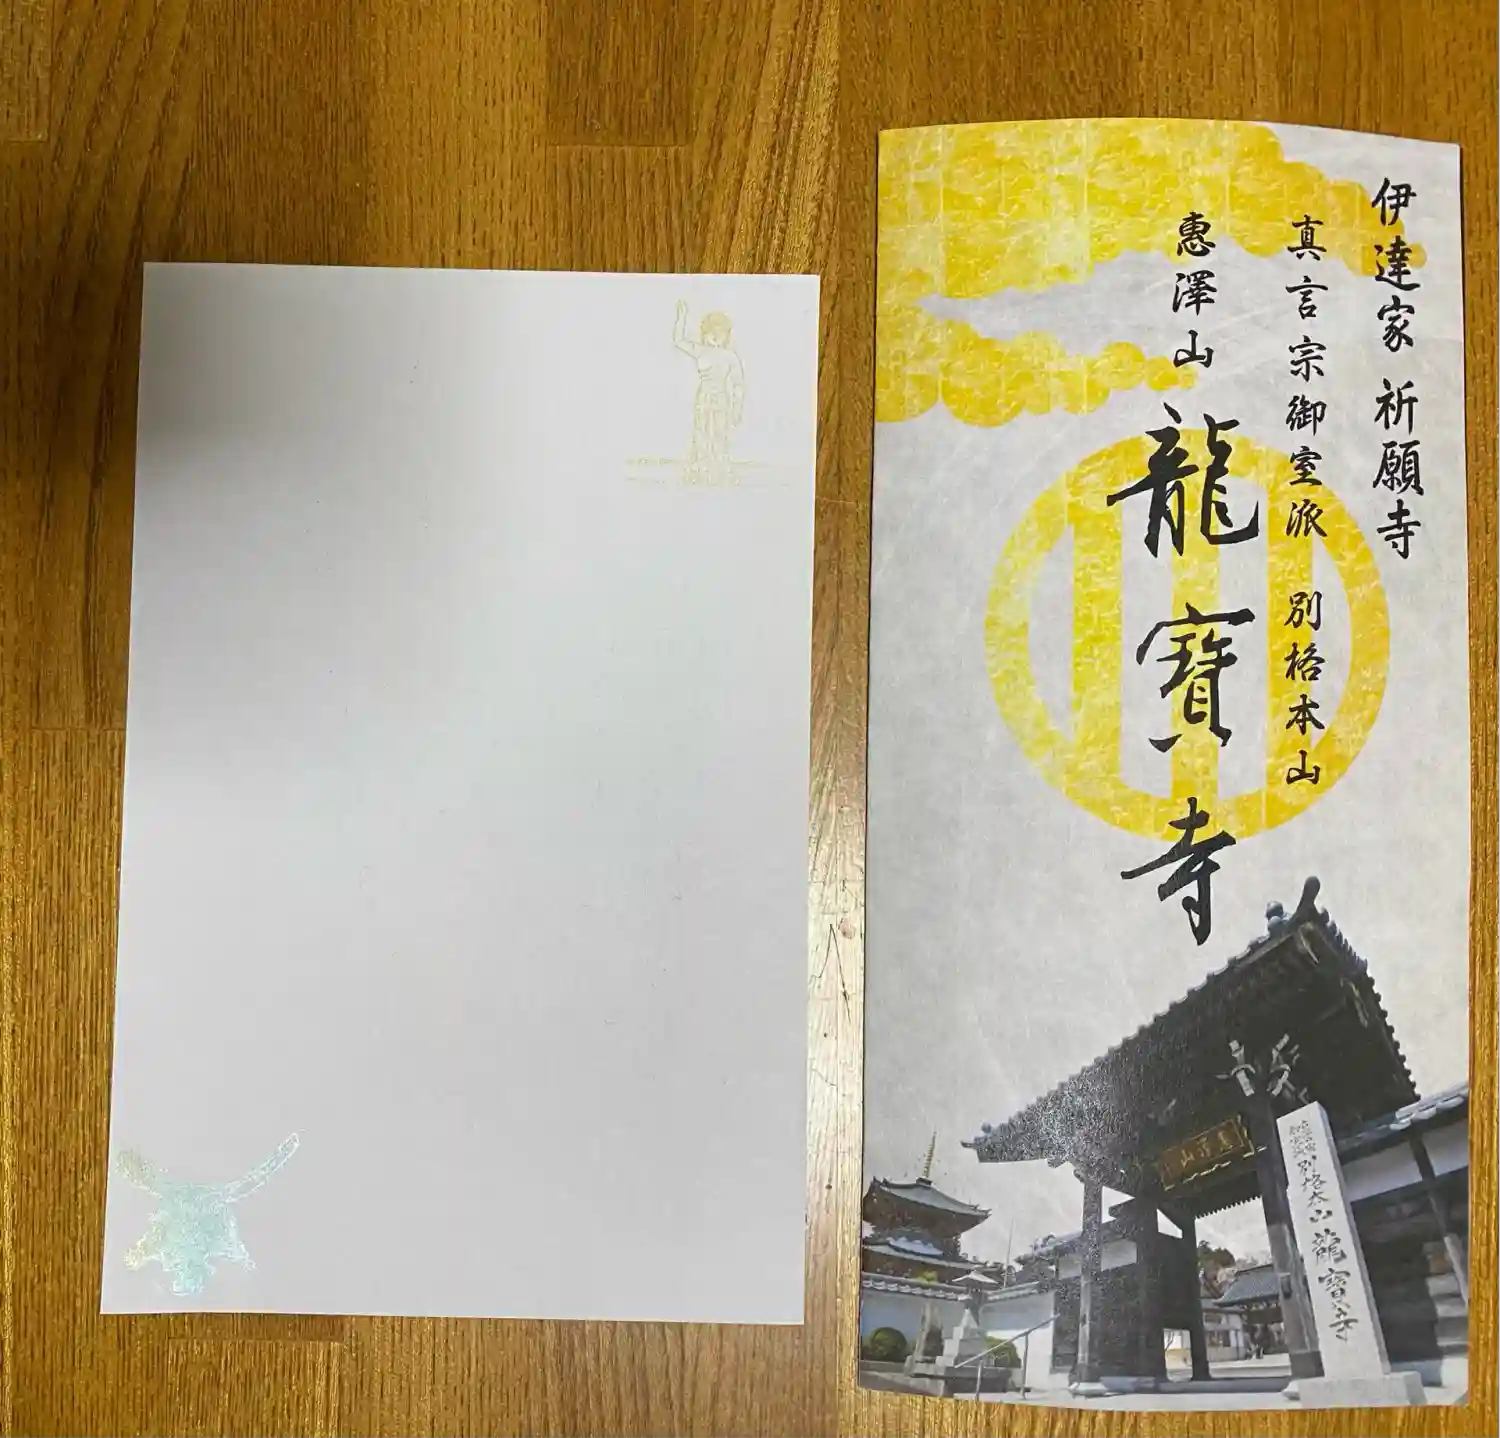 伊達家 祈願寺
真言宗御室派 別格本山
惠澤山 龍寳寺
惠澤山
別格本山 龍寳寺